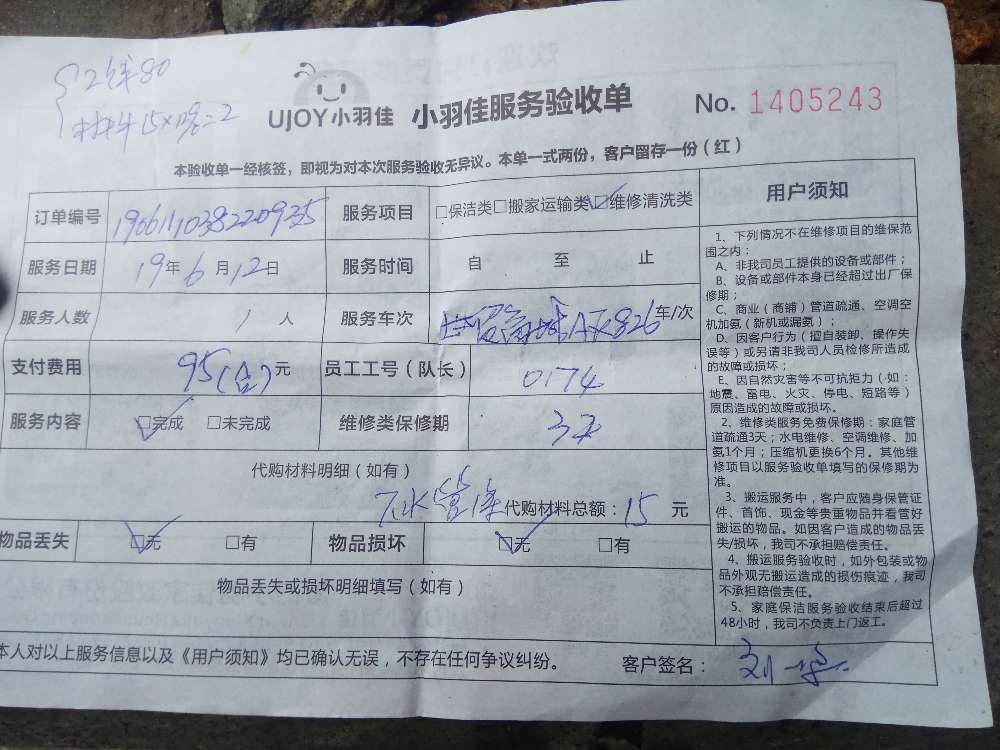 2 80
15× =2
UJOY小羽佳 小羽佳服务验收单 No. 1405243
本验收单一经核签，即视为对本次服务验收无异议。本单一式两份，客户留存一份（红）
订单编号 服务项目 □保洁类□搬家运输类□维修清洗类
服务日期 19年6月12日 服务时间 自 至 止
服务人数 1人 服务车次 826车/次
支付费用 95(合)元 员工工号（队长） 0174
服务内容 □完成 □未完成 维修类保修期 3天
代购材料明细（如有）
下水管 代购材料总额：15元
物品丢失 □无 □有 物品损坏 □无 □有
物品丢失或损坏明细填写（如有）
本人对以上服务信息以及《用户须知》均已确认无误，不存在任何争议纠纷。 客户签名：刘
用户须知
1、下列情况不在维修项目的维保范
围之内：
A、非我司员工提供的设备或部件；
B、设备或部件本身已经超过出厂保
修期；
C、商业（商铺）管道疏通、空调空
机加氨（新机或漏氨）；
D、因客户行为（擅自装卸、操作失
误等）或另请非我司人员检修所造成
的故障或损坏；
E、因自然灾害等不可抗拒力（如：
地震、雷电、火灾、停电、短路等）
原因造成的故障或损坏。
2、维修类服务免费保修期：家庭管
道疏通3天；水电维修、空调维修、加
氨1个月；压缩机更换6个月。其他维
修项目以服务验收单填写的保修期为
准。
3、搬运服务中，客户应随身保管证
件、首饰、现金等贵重物品并看管好
搬运的物品。如因客户造成的物品丢
失/损坏，我司不承担赔偿责任。
4、搬运服务验收时，如外包装或物
品外观无搬运造成的损伤痕迹，我司
不承担赔偿责任。
5、家庭保洁服务验收结束后超过
48小时，我司不负责上门返工。